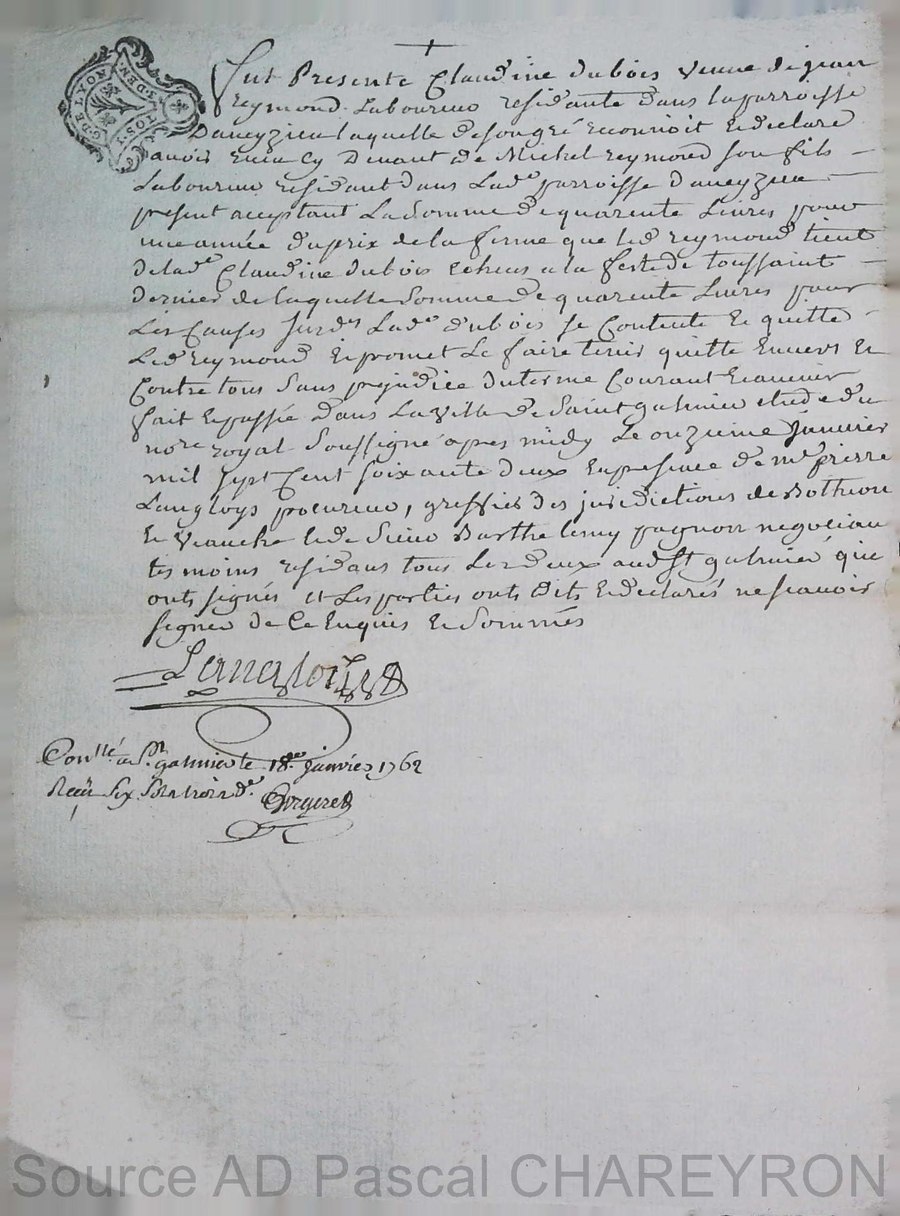 G. DE LYON
DEN.
Fut Presente Claudine dubois veuve de jean
reymond Laboureur residante dans la parroisse
Daveyzieu laquelle de son gré reconnoit et declare
avoir reçu cy devant de Michel reymond son fils
Laboureur residant dans Lade parroisse daveyzieu
present acceptant La Somme de quarente Livres pour
une année du prix de la ferme que led reymond tient
de lade Claudine dubois echeus a la feste de toussaint
dernier de laquelle Somme de quarente Livres pour
Les Causes Surdes Lade dubois se Contente et quitte
Led reymond et promet Le faire tenir quitte Envers et
Contre tous Sans prejudice du terme Courant et avenir
fait et passée dans La ville de Saint galmier etude du
nore royal Soussigné apres midy Le onzieme janvier
mil sept Cent soixante deux En presence de me pierre
Langloys procureur, greffier des juridictions de Bothéon
et veauche et de Sieur Barthelemy pagnon negociant
temoins residans tous Les deux aud St galmier que
onts signés et Les parties onts dits et declarés ne scavoir
signer de Ce Enquis et Sommés
Langlois
Conllé a St galmier le 18e janvier 1762
Reçu six sols trois de Bergeret
Source AD Pascal CHAREYRON